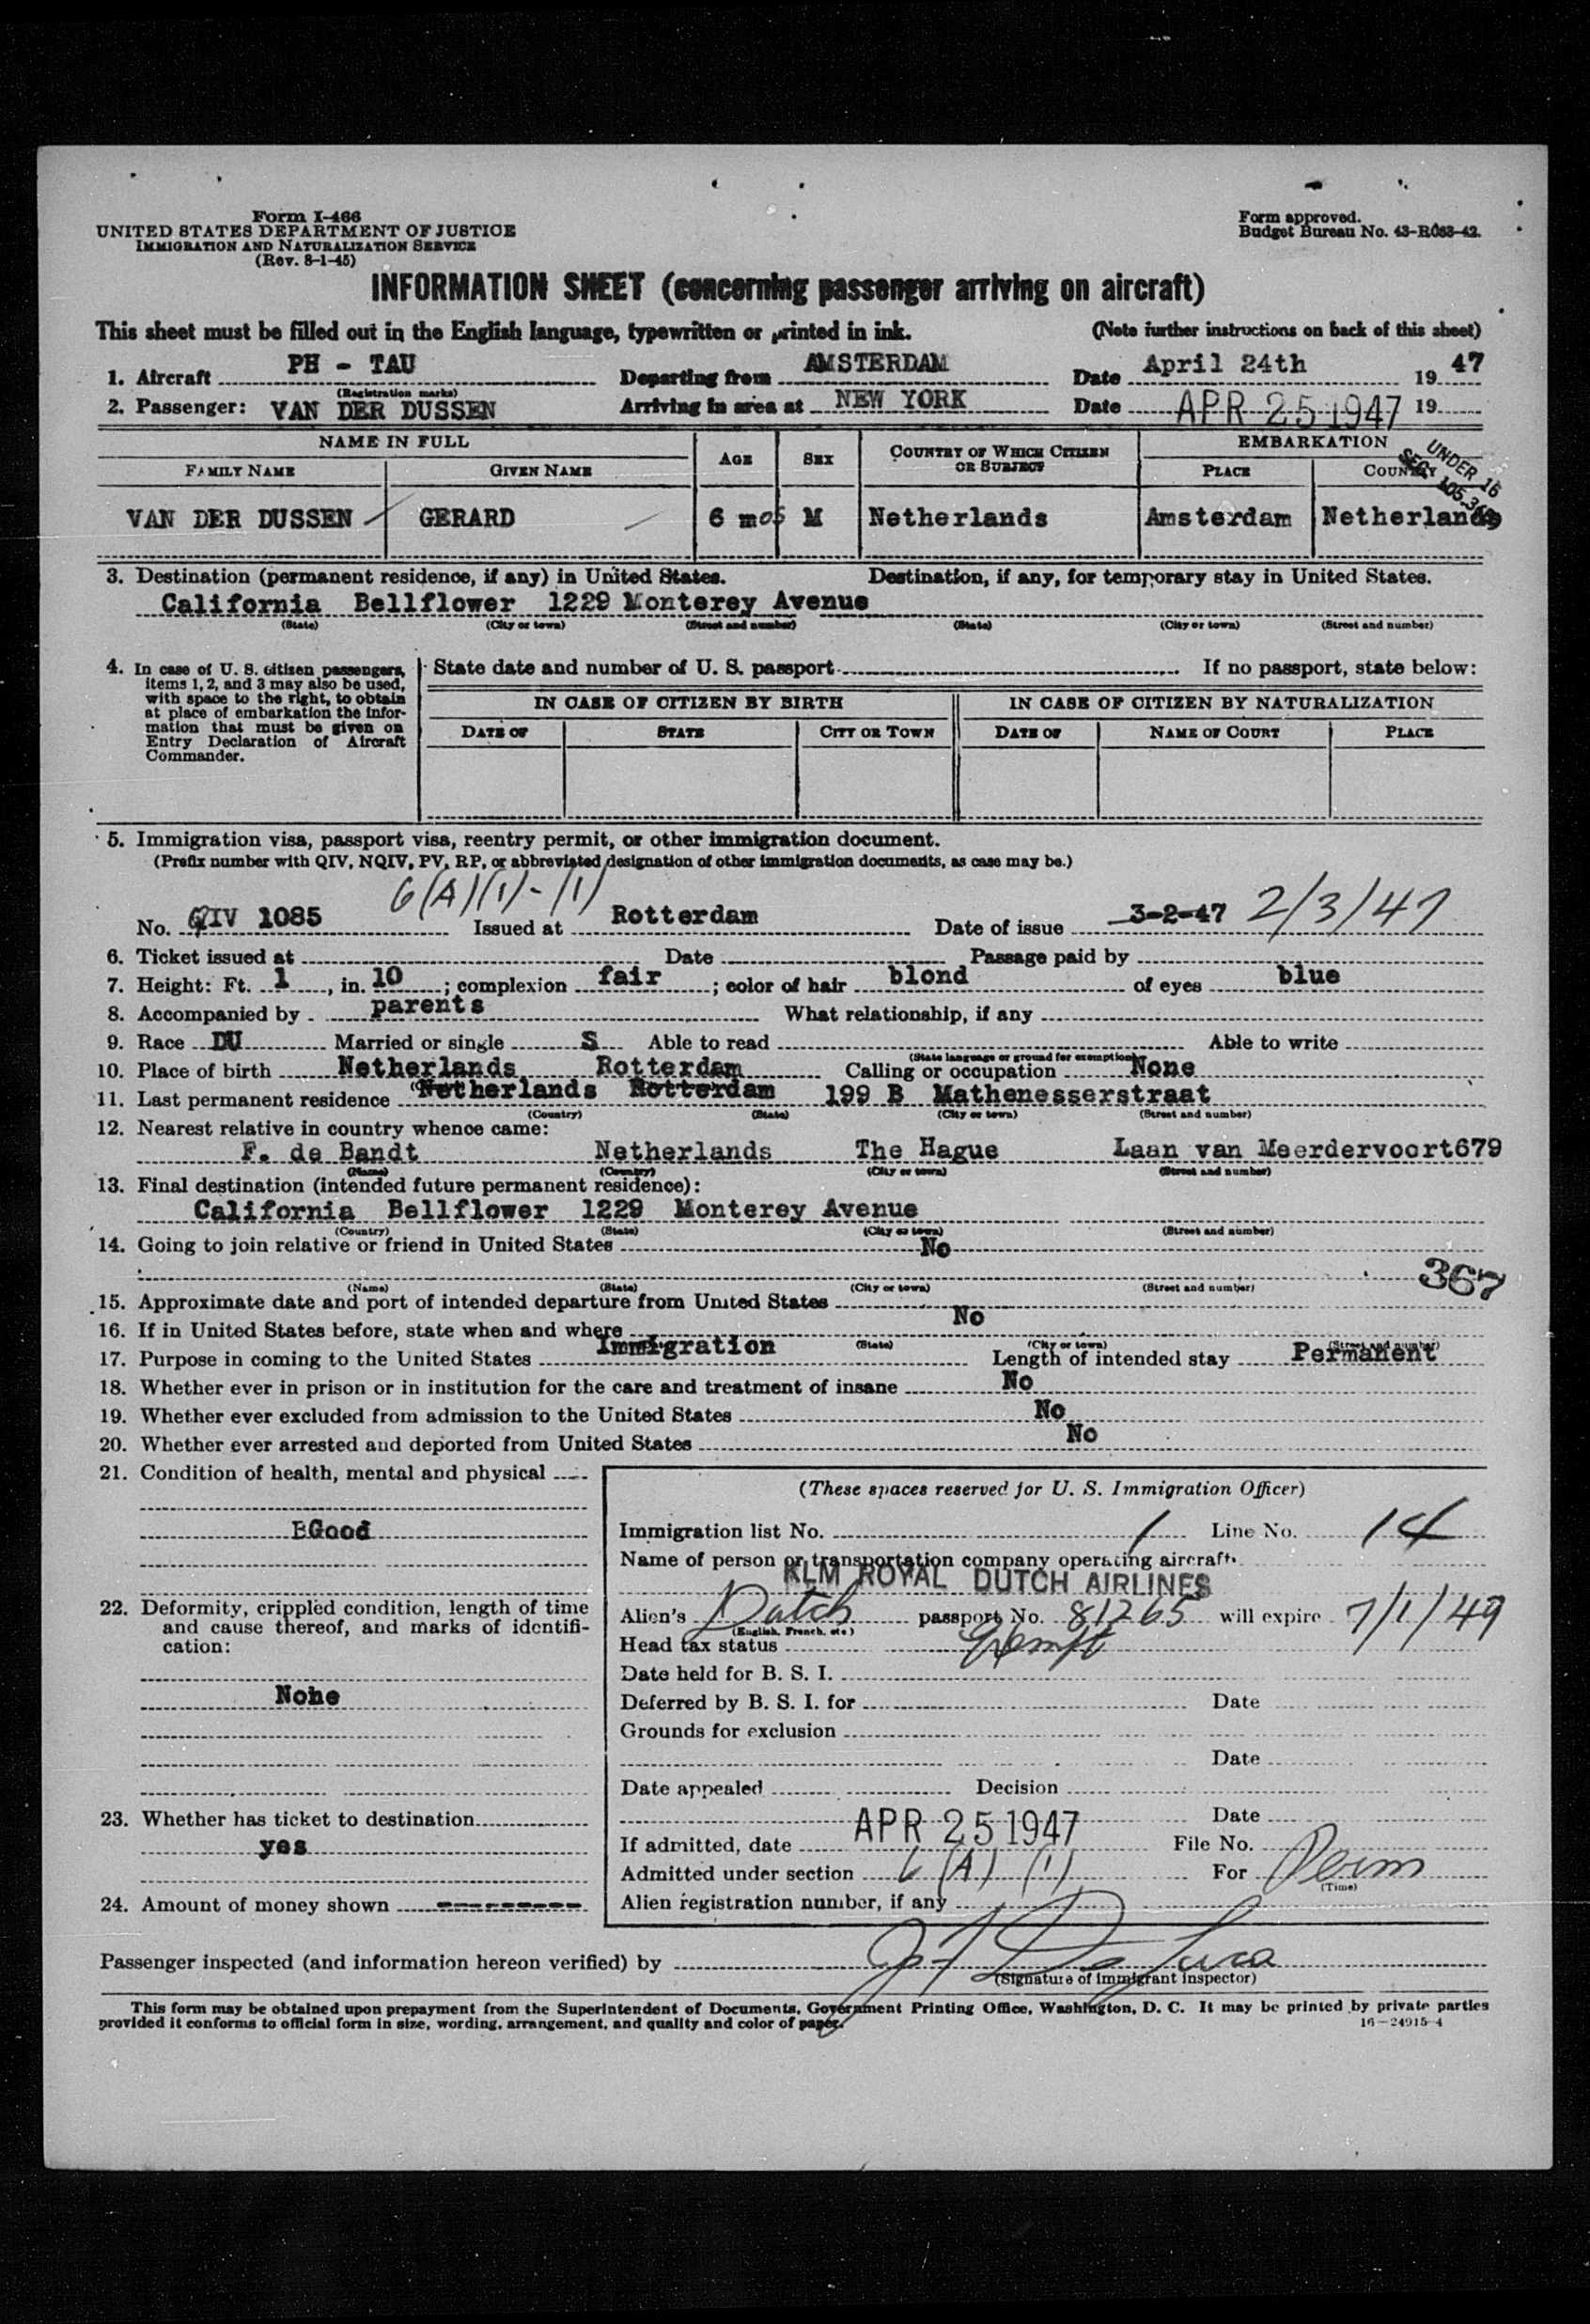 Form I-466
UNITED STATES DEPARTMENT OF JUSTICE
IMMIGRATION AND NATURALIZATION SERVICE
(Rev. 8-1-45)
Form approved.
Budget Bureau No. 43-R083-42.
INFORMATION SHEET (concerning passenger arriving on aircraft)
This sheet must be filled out in the English language, typewritten or printed in ink. (Note further instructions on back of this sheet)
1. Aircraft PH - TAU Departing from AMSTERDAM Date April 24th 19 47
(Registration marks)
2. Passenger: VAN DER DUSSEN Arriving in area at NEW YORK Date APR 25 1947 19
NAME IN FULL AGE SEX COUNTRY OF WHICH CITIZEN OR SUBJECT EMBARKATION
FAMILY NAME GIVEN NAME PLACE COUNTRY
UNDER 16
SEC. 105.3
VAN DER DUSSEN GERARD 6 mos M Netherlands Amsterdam Netherlands
3. Destination (permanent residence, if any) in United States. Destination, if any, for temporary stay in United States.
California Bellflower 1229 Monterey Avenue
(State) (City or town) (Street and number) (State) (City or town) (Street and number)
4. In case of U. S. citizen passengers, items 1, 2, and 3 may also be used, with space to the right, to obtain at place of embarkation the information that must be given on Entry Declaration of Aircraft Commander.
State date and number of U. S. passport If no passport, state below:
IN CASE OF CITIZEN BY BIRTH IN CASE OF CITIZEN BY NATURALIZATION
DATE OF STATE CITY OR TOWN DATE OF NAME OF COURT PLACE
5. Immigration visa, passport visa, reentry permit, or other immigration document.
(Prefix number with QIV, NQIV, PV, RP, or abbreviated designation of other immigration documents, as case may be.)
6(A)(1)-(1)
No. QIV 1085 Issued at Rotterdam Date of issue 3-2-47 2/3/47
6. Ticket issued at Date Passage paid by
7. Height: Ft. 1, in. 10; complexion fair; color of hair blond of eyes blue
8. Accompanied by parents What relationship, if any
9. Race DU Married or single S Able to read Able to write
(State language or ground for exemption)
10. Place of birth Netherlands Rotterdam Calling or occupation None
11. Last permanent residence Netherlands Rotterdam 199 B Mathenesserstraat
(Country) (State) (City or town) (Street and number)
12. Nearest relative in country whence came:
F. de Bandt Netherlands The Hague Laan van Meerdervoort679
(Name) (Country) (City or town) (Street and number)
13. Final destination (intended future permanent residence):
California Bellflower 1229 Monterey Avenue
(Country) (State) (City or town) (Street and number)
14. Going to join relative or friend in United States No
367
(Name) (State) (City or town) (Street and number)
15. Approximate date and port of intended departure from United States
16. If in United States before, state when and where No
(State) (City or town) (Street and number)
17. Purpose in coming to the United States Immigration Length of intended stay Permanent
18. Whether ever in prison or in institution for the care and treatment of insane No
19. Whether ever excluded from admission to the United States No
20. Whether ever arrested and deported from United States No
21. Condition of health, mental and physical
Good
22. Deformity, crippled condition, length of time and cause thereof, and marks of identification:
None
23. Whether has ticket to destination
yes
24. Amount of money shown
(These spaces reserved for U. S. Immigration Officer)
Immigration list No. 1 Line No. 14
Name of person or transportation company operating aircraft
KLM ROYAL DUTCH AIRLINES
Alien's Dutch passport No. 81265 will expire 7/1/49
(English, French, etc.)
Head tax status Exempt
Date held for B. S. I.
Deferred by B. S. I. for Date
Grounds for exclusion
Date
Date appealed Decision
Date
If admitted, date APR 25 1947 File No.
Admitted under section 6 (A) (1) For Perm
(Time)
Alien registration number, if any
Passenger inspected (and information hereon verified) by J F De Luca
(Signature of immigrant inspector)
This form may be obtained upon prepayment from the Superintendent of Documents, Government Printing Office, Washington, D. C. It may be printed by private parties
provided it conforms to official form in size, wording, arrangement, and quality and color of paper. 16-24915-4